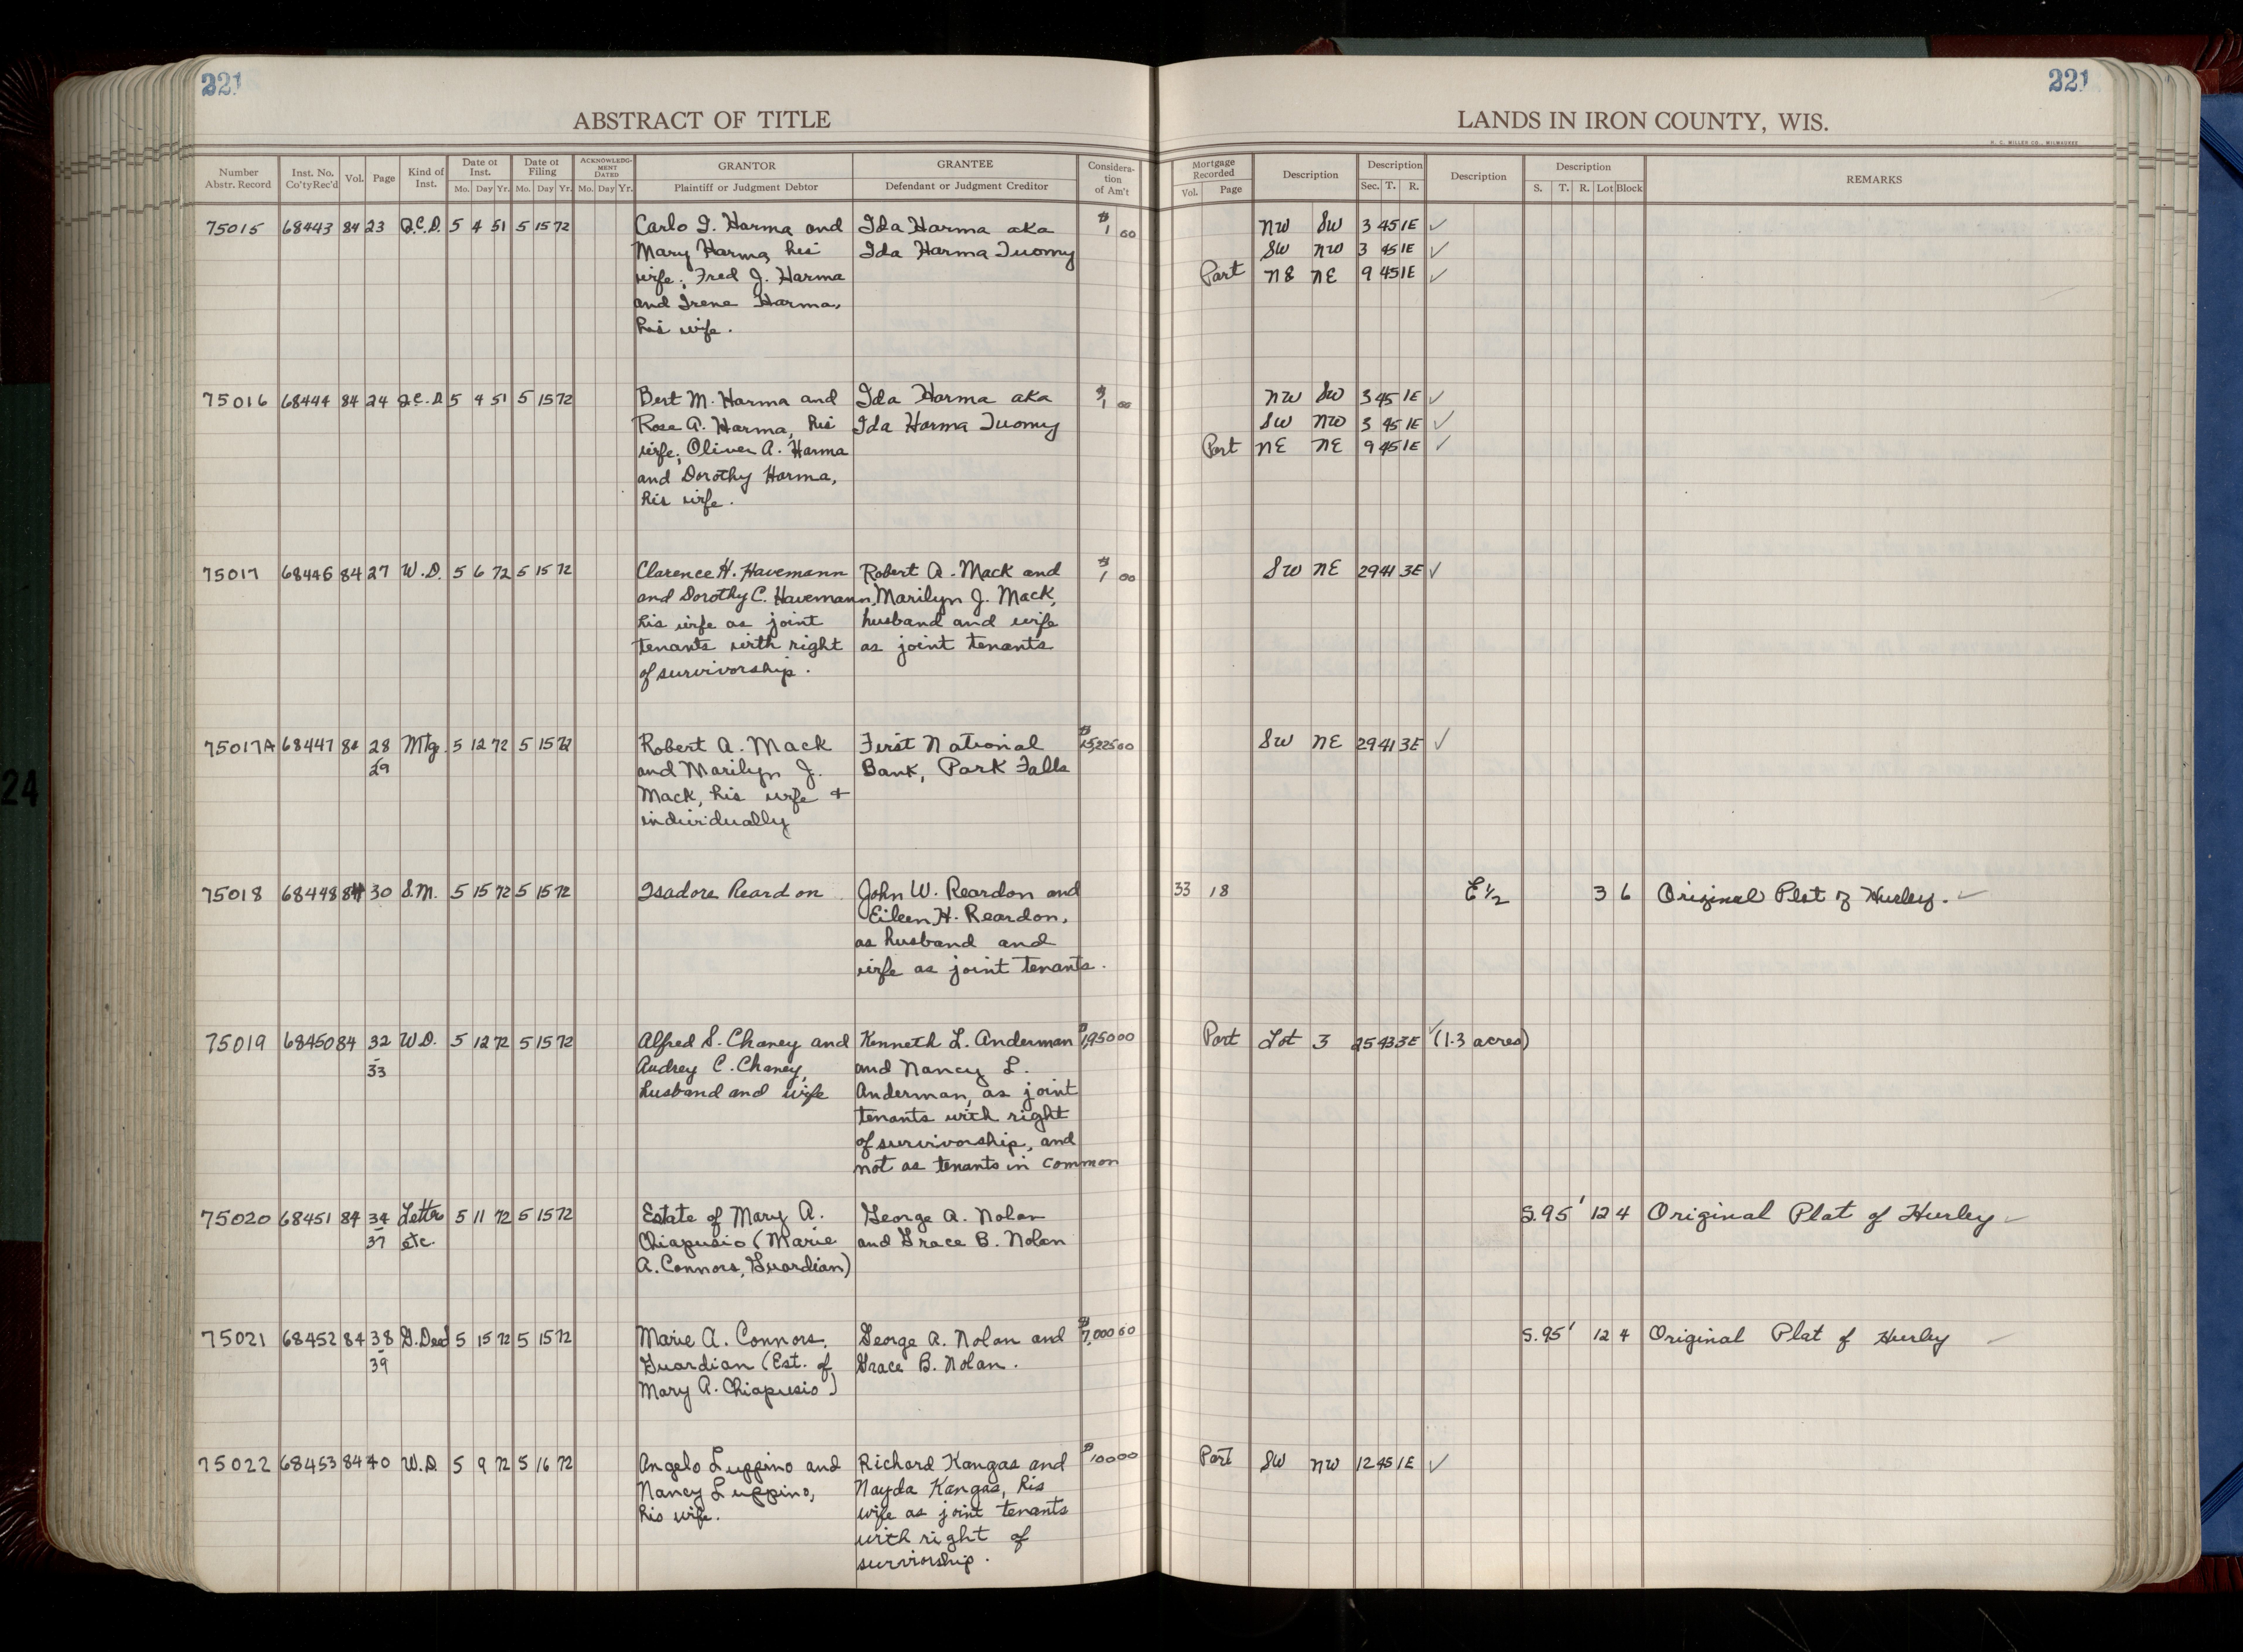 221
221
ABSTRACT OF TITLE
LANDS IN IRON COUNTY, WIS.
H. C. MILLER CO., MILWAUKEE
Number Abstr. Record
Inst. No. Co'ty Rec'd
Vol.
Page
Kind of Inst.
Date of Inst. Mo. Day Yr.
Date of Filing Mo. Day Yr.
ACKNOWLEDGMENT DATED Mo. Day Yr.
GRANTOR Plaintiff or Judgment Debtor
GRANTEE Defendant or Judgment Creditor
Consideration of Am't
Mortgage Recorded Vol. Page
Description
Description Sec. T. R.
Description
Description S. T. R. Lot Block
REMARKS
75015 68443 84 23 Q.C.D. 5 4 51 5 15 72 Carlo I. Harma and Ida Harma aka $1 00 NW SW 3 45 1E ✓
Mary Harma, his Ida Harma Tuomy SW NW 3 45 1E ✓
wife; Fred J. Harma Part NE NE 9 45 1E ✓
and Irene Harma,
his wife.
75016 68444 84 24 Q.C.D 5 4 51 5 15 72 Bert M. Harma and Ida Harma aka $1 00 NW SW 3 45 1E ✓
Rose A. Harma, his Ida Harma Tuomy SW NW 3 45 1E ✓
wife; Oliver A. Harma Part NE NE 9 45 1E ✓
and Dorothy Harma,
his wife.
75017 68446 84 27 W.D. 5 6 72 5 15 72 Clarence H. Havemann Robert A. Mack and $1 00 SW NE 29 41 3E ✓
and Dorothy C. Havemann, Marilyn J. Mack,
his wife as joint husband and wife
tenants with right as joint tenants
of survivorship.
75017A 68447 84 28 Mtg. 5 12 72 5 15 72 Robert A. Mack First National $15,225 00 SW NE 29 41 3E ✓
29 and Marilyn J. Bank, Park Falls
Mack, his wife +
individually
75018 68448 84 30 S.M. 5 15 72 5 15 72 Isadore Reardon John W. Reardon and 33 18 E 1/2 3 6 Original Plat of Hurley. ✓
Eileen H. Reardon,
as husband and
wife as joint tenants.
75019 68450 84 32 W.D. 5 12 72 5 15 72 Alfred S. Chaney and Kenneth L. Anderman $1,950 00 Part Lot 3 25 43 3E ✓ (1.3 acres)
33 Audrey C. Chaney, and Nancy L.
husband and wife Anderman, as joint
tenants with right
of survivorship, and
not as tenants in common
75020 68451 84 34 Letters 5 11 72 5 15 72 Estate of Mary A. George A. Nolan S. 95' 12 4 Original Plat of Hurley ✓
37 etc. Chiapusio (Marie and Grace B. Nolan
A. Connors, Guardian)
75021 68452 84 38 G. Deed 5 15 72 5 15 72 Marie A. Connors, George A. Nolan and $7,000 00 S. 95' 12 4 Original Plat of Hurley ✓
39 Guardian (Est. of Grace B. Nolan.
Mary A. Chiapusio)
75022 68453 84 40 W.D. 5 9 72 5 16 72 Angelo Luppino and Richard Kangas and $100 00 Part SW NW 12 45 1E ✓
Nancy Luppino, Nayda Kangas, his
his wife. wife as joint tenants
with right of
surviorship.
24